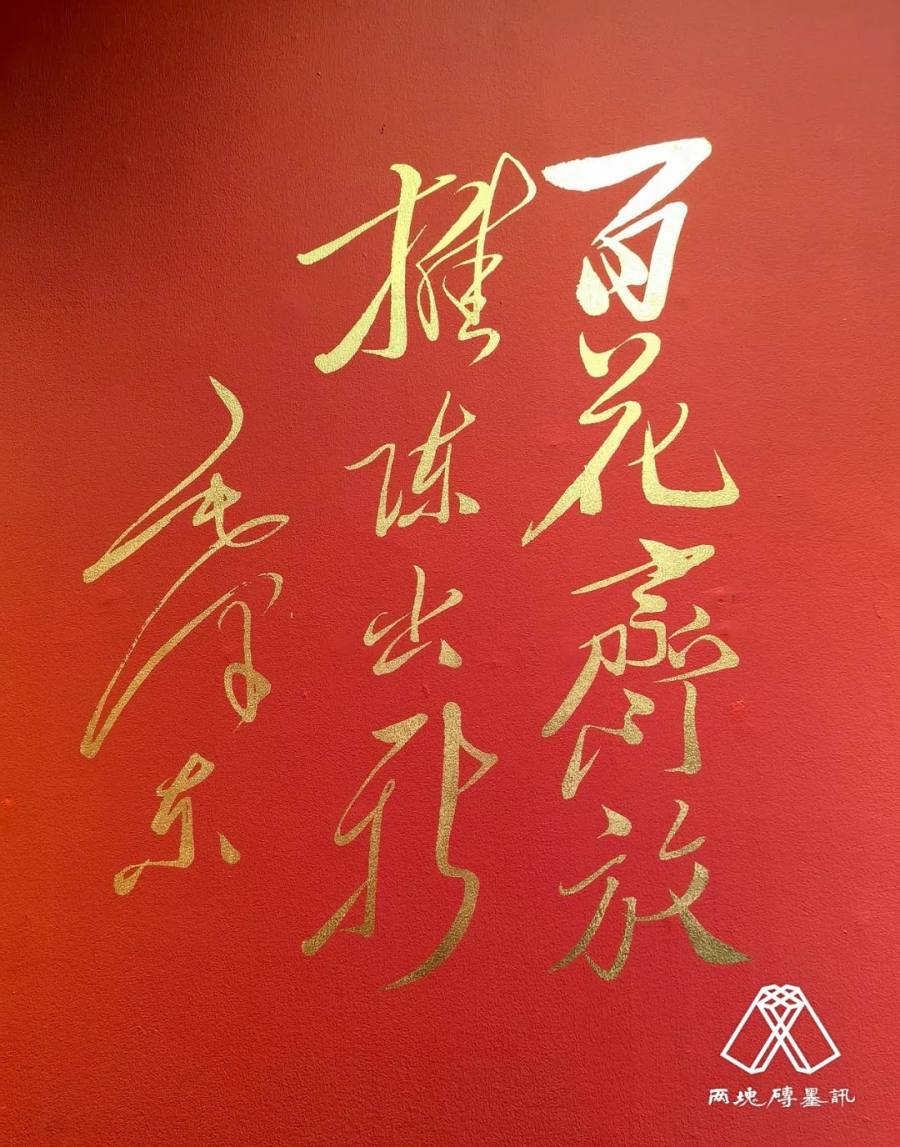 百花齊放
推陈出新
毛泽东
两塊磚墨訊